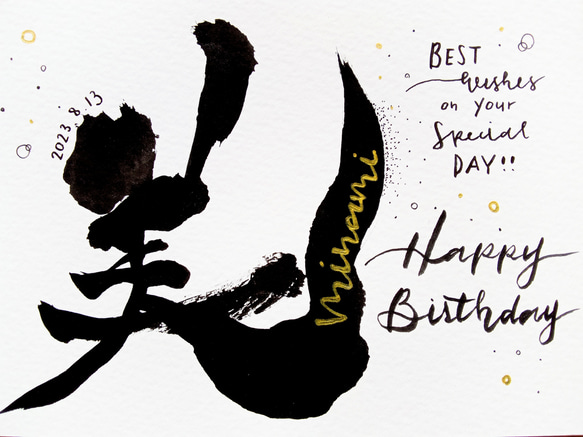 2023.8.13
美
Minami
BEST
wishes
on your
Special
DAY!!
Happy
Birthday